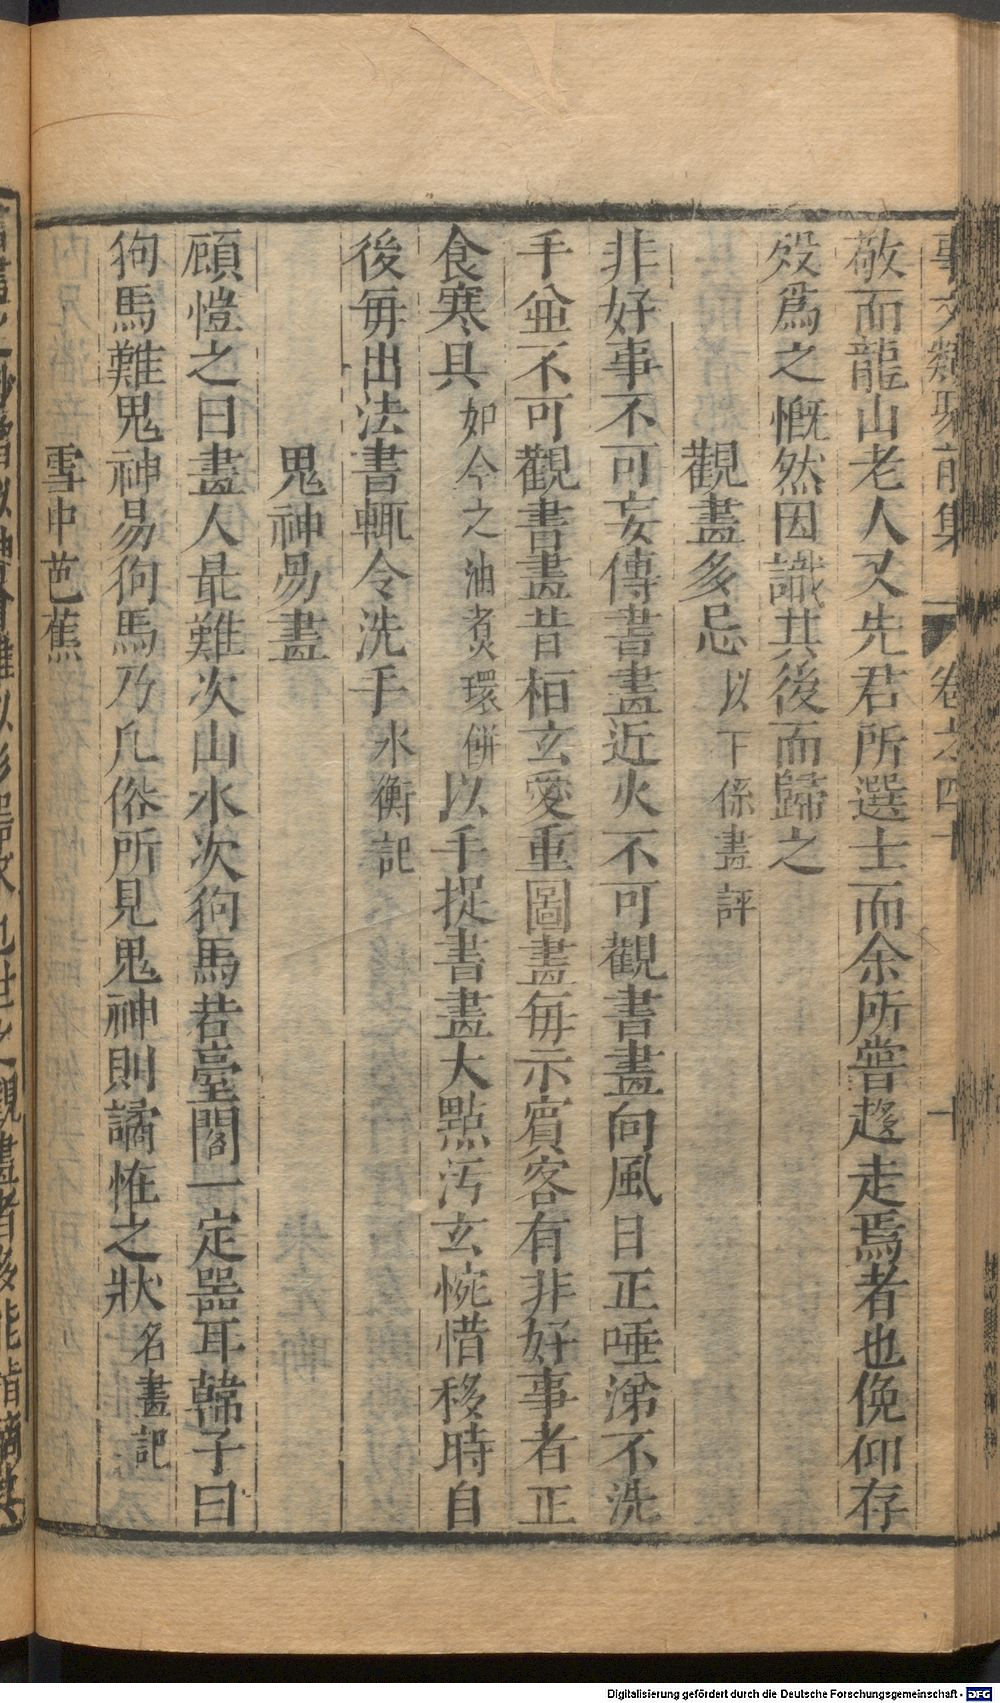 事文類聚前集 卷之四十 十
敬而龍山老人又先君所選士而余所嘗趍走焉者也俛仰存
歿爲之慨然因識其後而歸之
觀畫多忌 以下係畫評
非好事不可妄傳書畫近火不可觀書畫向風日正唾涕不洗
手並不可觀書畫昔桓玄愛重圖畫每示賓客有非好事者正
食寒具 如今之油煮環餅 以手捉書畫大點汚玄惋惜移時自
後每出法書輒令洗手 水衡記
鬼神易畫
顧愷之曰畫人最難次山水次狗馬若臺閣一定器耳韓子曰
狗馬難鬼神易狗馬乃凡俗所見鬼神則譎恠之狀 名畫記
雪中芭蕉
Digitalisierung gefördert durch die Deutsche Forschungsgemeinschaft - DFG